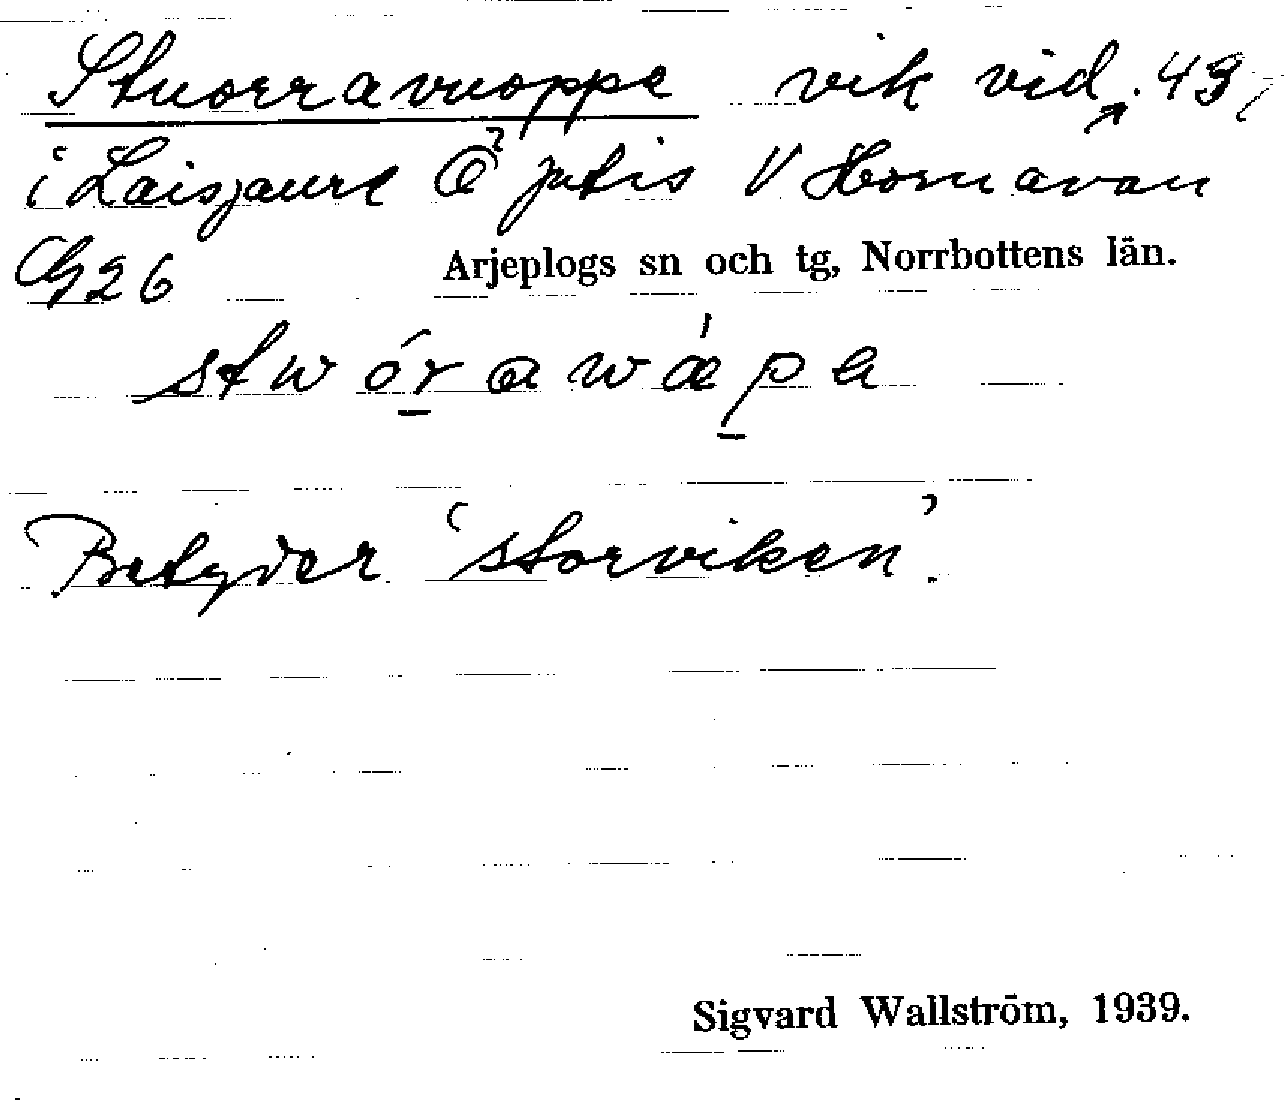 Stuorravuoppe vik vid ↗. 43,
i Laisjaure Ö Jutis V Hornavan
G26 Arjeplogs sn och tg, Norrbottens län.
stwóṟawáp̱e
Betyder 'storviken'.
Sigvard Wallström, 1939.